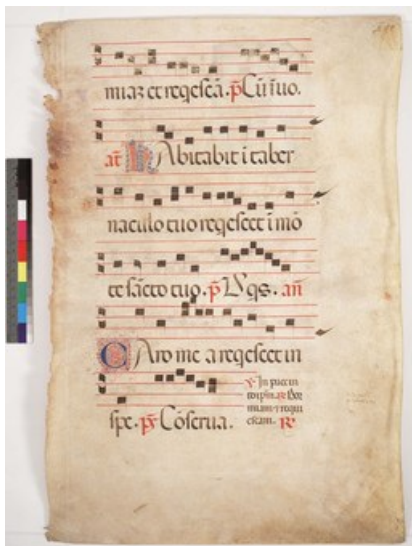 miaz et reqescā. p̄s Cū īuo.
añ HAbitabit i taber
naculo tuo reqescet ī mō
te sācto tuo. p̄s Dn̄s qs. añ
CAro me a reqescet in
spe. p̄s Cōserua.
℣ In pace in
idip̄m. ℟ Dor
miam ⁊ requi
escam. ℟